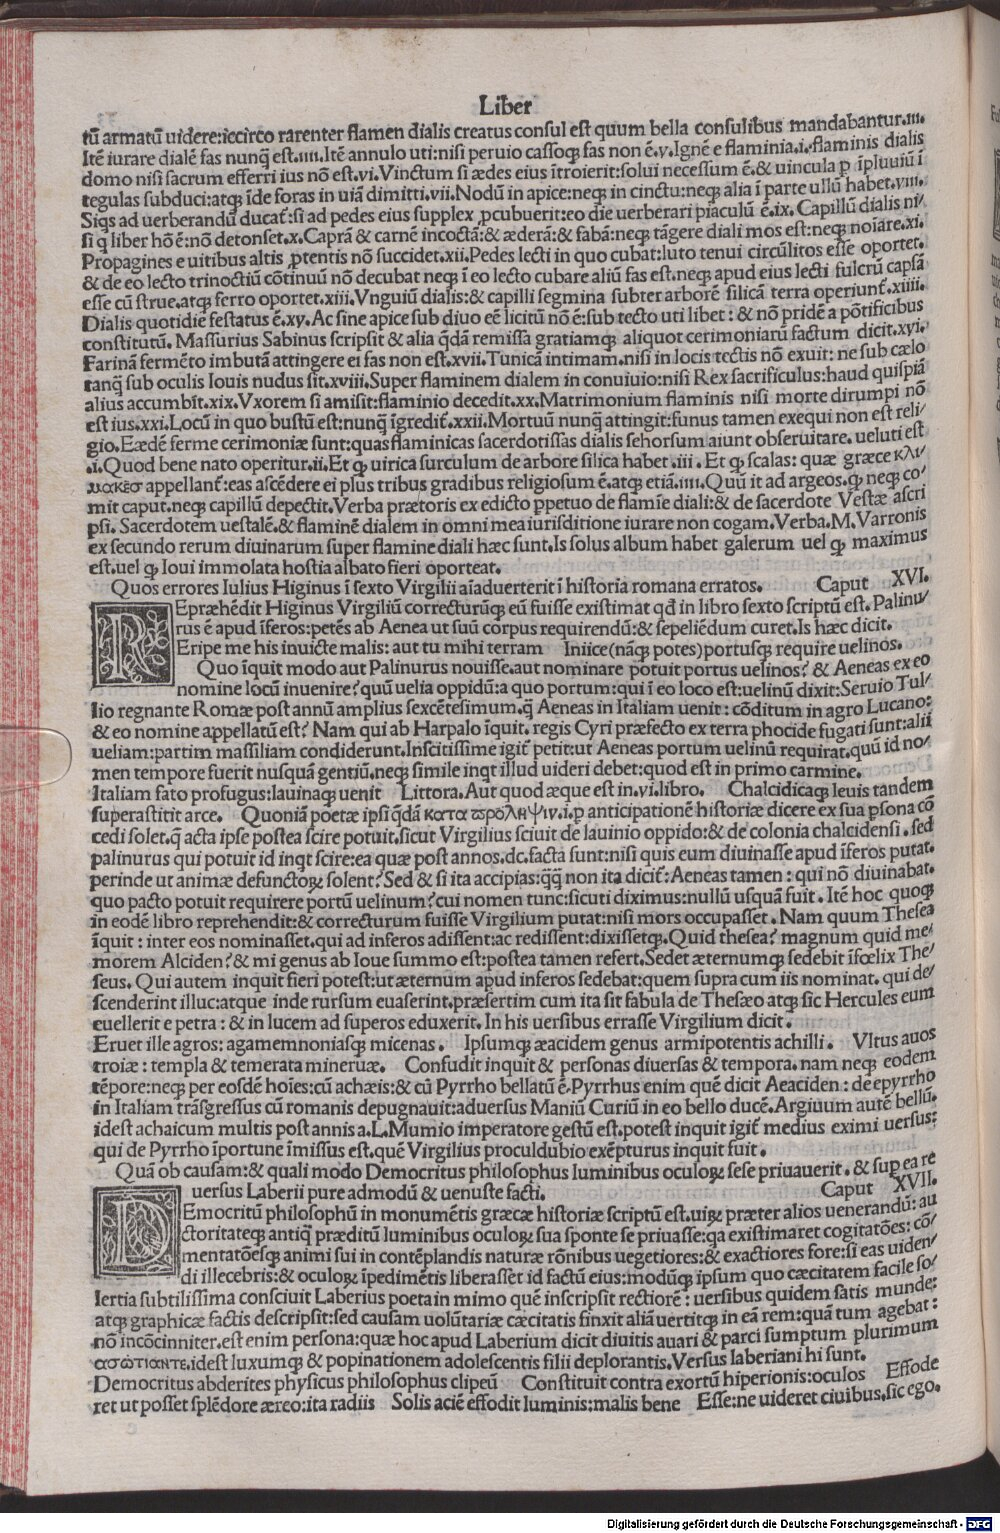 Liber
tū armatū uidere:iccirco rarenter flamen dialis creatus consul est quum bella consulibus mandabantur.iii.
Itē iurare dialē fas nunꝗ̄ est.iiii.Itē annulo uti:nisi peruio cassoqꝫ fas non ē.y.Ignē e flaminia.i.flaminis dialis
domo nisi sacrum efferri ius nō est.vi.Vinctum si ædes eius ītroierit:solui necessium ē.& uincula p īpluuiū ī
tegulas subduci:atqꝫ īde foras in uiā dimitti.vii.Nodū in apice:neqꝫ in cinctu:neqꝫ alia ī parte ullū habet.viii.
Siqs ad uerberandū ducat̄:si ad pedes eius supplex ꝓcubuerit:eo die uerberari piaculū ē.ix.Capillū dialis ni/
si q liber hō ē:nō detonset.x.Caprā & carnē incoctā:& æderā:& fabā:neqꝫ tāgere diali mos est:neqꝫ noīare.xi.
Propagines e uitibus altis ꝓtentis nō succidet.xii.Pedes lecti in quo cubat:luto tenui circūlitos esse oportet.
& de eo lecto trinoctiū cōtinuū nō decubat neqꝫ ī eo lecto cubare aliū fas est.neqꝫ apud eius lecti fulcrū capsā
esse cū strue.atqꝫ ferro oportet.xiii.Vnguiū dialis:& capilli segmina subter arborē silicā terra operiunt̄.xiiii.
Dialis quotidie festatus ē.xy.Ac sine apice sub diuo eē licitū nō ē:sub tecto uti libet: & nō pridē a pōtificibus
constitutū. Massurius Sabinus scripsit & alia qdā remissa gratiamqꝫ aliquot cerimoniarū factum dicit.xyi.
Farinā fermēto imbutā attingere ei fas non est.xvii.Tunicā intimam.nisi in locis tectis nō exuit: ne sub cælo
tanꝗ̄ sub oculis Iouis nudus sit.xviii.Super flaminem dialem in conuiuio:nisi Rex sacrificulus:haud quispiā
alius accumbīt.xix.Vxorem si amisit:flaminio decedit.xx.Matrimonium flaminis nisi morte dirumpi nō
est ius.xxi.Locū in quo bustū est:nunꝗ̄ īgredit̄.xxii.Mortuū nunꝗ̄ attingit:funus tamen exequi non est reli/
gio.Eædē ferme cerimoniæ sunt:quas flaminicas sacerdotissas dialis sehorsum aiunt obseruitare. ueluti est
.i.Quod bene nato operitur.ii.Et ꝙ uirica surculum de arbore silica habet .iii . Et ꝙ scalas: quæ græce κλι/
μακεσ appellant̄:eas ascēdere ei plus tribus gradibus religiosum ē.atqꝫ etiā.iiii.Quū it ad argeos.ꝙ neqꝫ co/
mit caput.neqꝫ capillū depectit.Verba prætoris ex edicto ꝑpetuo de flamīe diali:& de sacerdote Vestæ ascri
psi. Sacerdotem uestalē.& flaminē dialem in omni mea iurisditione iurare non cogam.Verba.M.Varronis
ex secundo rerum diuinarum super flamine diali hæc sunt.Is solus album habet galerum uel ꝙ maximus
est.uel ꝙ Ioui immolata hostia albato fieri oporteat.
Quos errores Iulius Higinus ī sexto Virgilii aīaduerterit ī historia romana erratos. Caput XVI.
REpræhēdit Higinus Virgiliū correcturūqꝫ eū fuisse existimat qd in libro sexto scriptū est.Palinu/
rus ē apud īferos:petēs ab Aenea ut suū corpus requirendū:& sepeliēdum curet.Is hæc dicit.
Eripe me his inuicte malis: aut tu mihi terram Iniice(nāqꝫ potes)portusqꝫ require uelinos.
Quo īquit modo aut Palinurus nouisse.aut nominare potuit portus uelinos? & Aeneas ex eo
nomine locū inuenire?quū uelia oppidū:a quo portum:qui ī eo loco est:uelinū dixit:Seruio Tul/
lio regnante Romæ post annū amplius sexcētesimum.ꝗ̄ Aeneas in Italiam uenit: cōditum in agro Lucano:
& eo nomine appellatū est? Nam qui ab Harpalo īquit. regis Cyri præfecto ex terra phocide fugati sunt:alii
ueliam:partim massiliam condiderunt.Inscitissime igit̄ petit:ut Aeneas portum uelinū requirat.quū id no/
men tempore fuerit nusquā gentiū.neqꝫ simile inqt illud uideri debet:quod est in primo carmine.
Italiam fato profugus:lauinaqꝫ uenit Littora.Aut quod æque est in.vi.libro. Chalcidicaqꝫ leuis tandem
superastitit arce. Quoniā poetæ ipsi qdā κατα προληψιν.i.ꝑ anticipationē historiæ dicere ex sua ꝑsona cō
cedi solet.ꝗ̄ acta ipse postea scire potuit.sicut Virgilius sciuit de lauinio oppido:& de colonia chalcidensi . sed
palinurus qui potuit id inqt scire:ea quæ post annos.dc.facta sunt:nisi quis eum diuinasse apud īferos putat.
perinde ut animæ defunctoꝝ solent?Sed & si ita accipias:ꝗ̄ꝗ̄ non ita dicit̄:Aeneas tamen : qui nō diuinabat.
quo pacto potuit requirere portū uelinum?cui nomen tunc:sicuti diximus:nullū usquā fuit . Itē hoc quoqꝫ
in eodē libro reprehendit:& correcturum fuisse Virgilium putat:nisi mors occupasset . Nam quum Thesea
īquit : inter eos nominasset.qui ad inferos adissent:ac redissent:dixissetqꝫ.Quid thesea? magnum quid me/
morem Alciden?& mi genus ab Ioue summo est:postea tamen refert.Sedet æternumqꝫ sedebit īfœlix The/
seus. Qui autem inquit fieri potest:ut æternum apud inferos sedebat:quem supra cum iis nominat. qui de/
scenderint illuc:atque inde rursum euaserint.præsertim cum ita sit fabula de Thesæo atqꝫ sic Hercules eum
euellerit e petra : & in lucem ad superos eduxerit. In his uersibus errasse Virgilium dicit.
Eruet ille agros: agamemnoniasqꝫ micenas . Ipsumqꝫ æacidem genus armipotentis achilli . Vltus auos
troiæ : templa & temerata mineruæ. Confudit inquit & personas diuersas & tempora. nam neqꝫ eodem
tēpore:neqꝫ per eosdē hoīes:cū achæis:& cū Pyrrho bellatū ē.Pyrrhus enim quē dicit Aeaciden : de epyrrho
in Italiam trāsgressus cū romanis depugnauit:aduersus Maniū Curiū in eo bello ducē.Argiuum autē bellū.
idest achaicum multis post annis a.L.Mumio imperatore gestū est.potest inquit igit̄ medius eximi uersus:
qui de Pyrrho īportune īmissus est.quē Virgilius proculdubio exēpturus inquit fuit .
Quā ob causam:& quali modo Democritus philosophus luminibus oculoꝝ sese priuauerit . & sup ea re
uersus Laberii pure admodū & uenuste facti. Caput XVII.
DEmocritū philosophū in monumētis græcæ historiæ scriptū est.uiꝝ præter alios uenerandū: au
ctoritateqꝫ antiq præditū luminibus oculoꝝ sua sponte se priuasse:qa existimaret cogitatōes: cō/
mentatōesqꝫ animi sui in contēplandis naturæ rōnibus uegetiores:& exactiores fore:si eas uiden/
di illecebris:& oculoꝝ īpedimētis liberasset id factū eius:modūqꝫ ipsum quo cæcitatem facile so/
lertia subtilissima consciuit Laberius poeta in mimo quē inscripsit rectiorē : uersibus quidem satis munde:
atqꝫ graphicæ factis descripsit:sed causam uolūtariæ cæcitatis finxit aliā uertitqꝫ in eā rem:quā tum agebat :
nō incōcinniter.est enim persona:quæ hoc apud Laberium dicit diuitis auari & parci sumptum plurimum
ασωτιαντε.idest luxumqꝫ & popinationem adolescentis filii deplorantis.Versus laberiani hi sunt.
Democritus abderites physicus philosophus clipeū Constituit contra exortū hiperionis:oculos Effode
ret ut posset splēdore æreo:ita radiis Solis aciē effodit luminis:malis bene Esse:ne uideret ciuibus.sic ego.
Digitalisierung gefördert durch die Deutsche Forschungsgemeinschaft - DFG